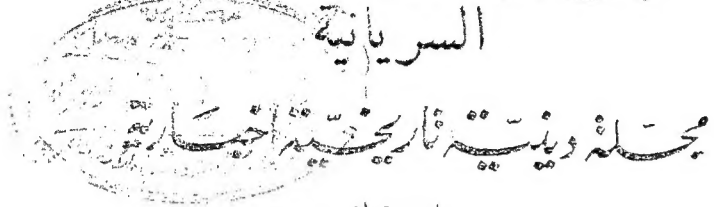 السريانية
مجلة دينية تاريخية اخبارية